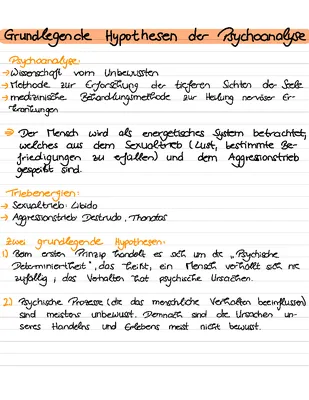 Grundlegende Hypothesen der Psychoanalyse
Psychoanalyse:
→ Wissenschaft vom Unbewussten
→ Methode zur Erforschung der tieferen Sichten der Seele
→ medizinische Behandlungsmethode zur Heilung nervöser Er-
krankungen
⇒ Der Mensch wird als energetisches System betrachtet,
welches aus dem Sexualtrieb (Lust, bestimmte Be-
friedigungen zu erfüllen) und dem Aggressionstrieb
gespeist sind.
Triebenergien:
→ Sexualtrieb: Libido
→ Aggressionstrieb: Destrudo, Thanatos
Zwei grundlegende Hypothesen:
1) Beim ersten Prinzip handelt es sich um die „Psychische
Determiniertheit", das heißt, ein Mensch verhält sich nie
zufällig, das Verhalten hat psychische Ursachen.
2) Psychische Prozesse (die das menschliche Verhalten beeinflussen)
sind meistens unbewusst. Demnach sind die Ursachen un-
seres Handelns und Erlebens meist nicht bewusst.